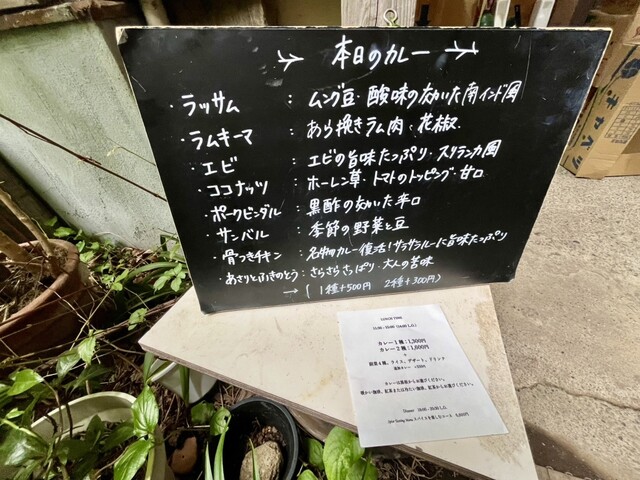 本日のカレー
・ラッサム : ムング豆・酸味の効いた南インド風
・ラムキーマ : あら挽きラム肉・花椒
・エビ : エビの旨味たっぷり・スリランカ風
・ココナッツ : ホーレン草・トマトのトッピング・甘口
・ポークビンダル : 黒酢の効いた辛口
・サンバル : 季節の野菜と豆
・骨つきチキン : 名物カレー復活!サラサラルーに旨味たっぷり
・あさりとふきのとう : さらさらさっぱり・大人の苦味
→ (1種+500円 2種+300円)
LUNCH TIME
カレー1種:1,300円
カレー2種:1,600円
+
副菜4種、ライス、デザート、ドリンク
カレーは黒板からお選びください。
Dinner
キャベツ